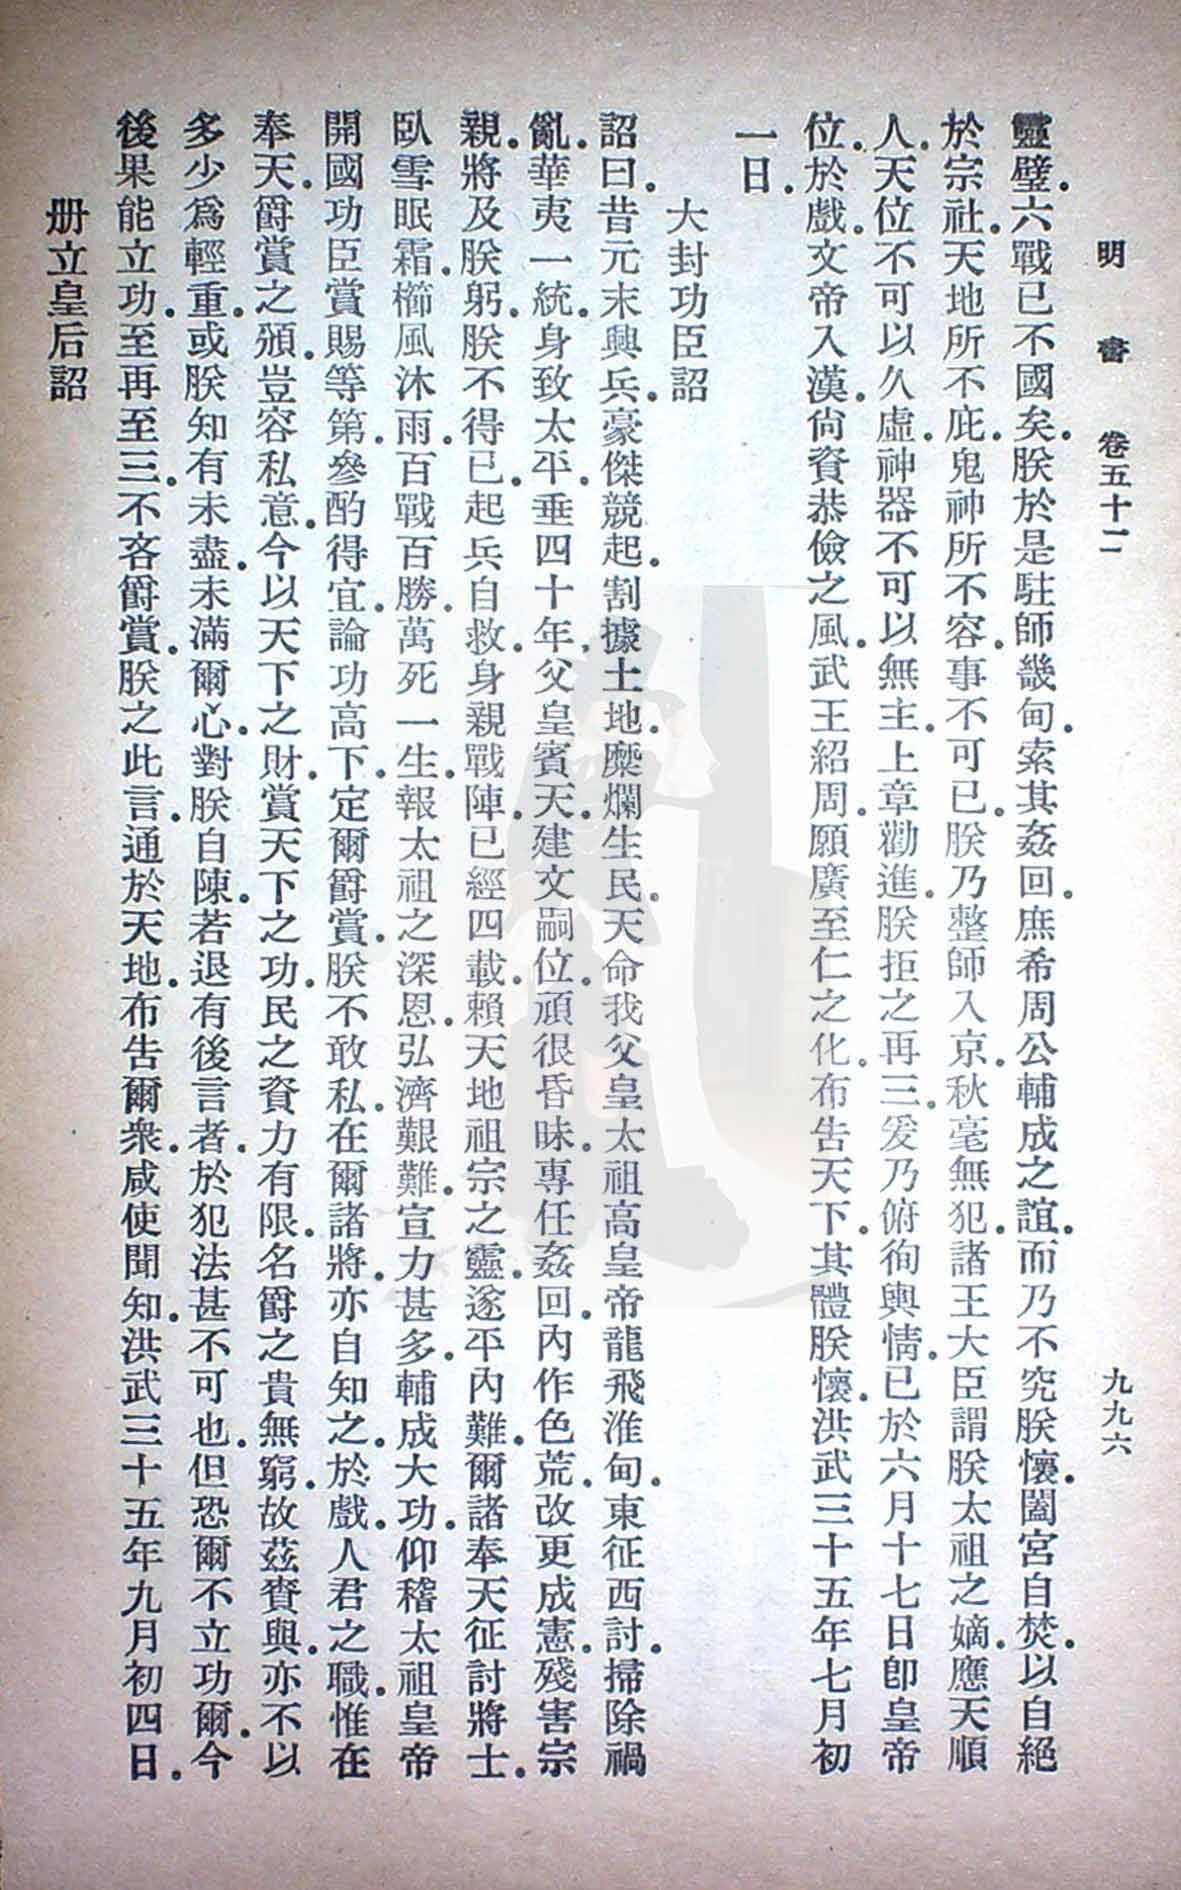 明 書 卷五十二 九九六
靈璧。六戰已不國矣。朕於是駐師畿甸。索其姦回。庶希周公輔成之誼。而乃不究朕懷。闔宮自焚。以自絕
於宗社。天地所不庇。鬼神所不容。事不可已。朕乃整師入京。秋毫無犯。諸王大臣謂朕太祖之嫡。應天順
人。天位不可以久虛。神器不可以無主。上章勸進。朕拒之再三。爰乃俯徇輿情。已於六月十七日卽皇帝
位。於戲。文帝入漢。尙資恭儉之風。武王紹周。願廣至仁之化。布告天下。其體朕懷。洪武三十五年七月初
一日。
大封功臣詔
詔曰。昔元末興兵。豪傑競起。割據土地。糜爛生民。天命我父皇太祖高皇帝龍飛淮甸。東征西討。掃除禍
亂。華夷一統。身致太平。垂四十年。父皇賓天。建文嗣位。頑很昏昧。專任姦回。內作色荒。改更成憲。殘害宗
親。將及朕躬。朕不得已。起兵自救。身親戰陣。已經四載。賴天地祖宗之靈。遂平內難。爾諸奉天征討將士。
臥雪眠霜。櫛風沐雨。百戰百勝。萬死一生。報太祖之深恩。弘濟艱難。宣力甚多。輔成大功。仰稽太祖皇帝
開國功臣賞賜等第。參酌得宜。論功高下。定爾爵賞。朕不敢私。在爾諸將。亦自知之。於戲。人君之職。惟在
奉天。爵賞之頒。豈容私意。今以天下之財。賞天下之功。民之資力有限。名爵之貴無窮。故茲賚與。亦不以
多少爲輕重。或朕知有未盡。未滿爾心。對朕自陳。若退有後言者。於犯法甚不可也。但恐爾不立功爾。今
後果能立功。至再至三。不吝爵賞。朕之此言。通於天地。布告爾衆。咸使聞知。洪武三十五年九月初四日。
册立皇后詔